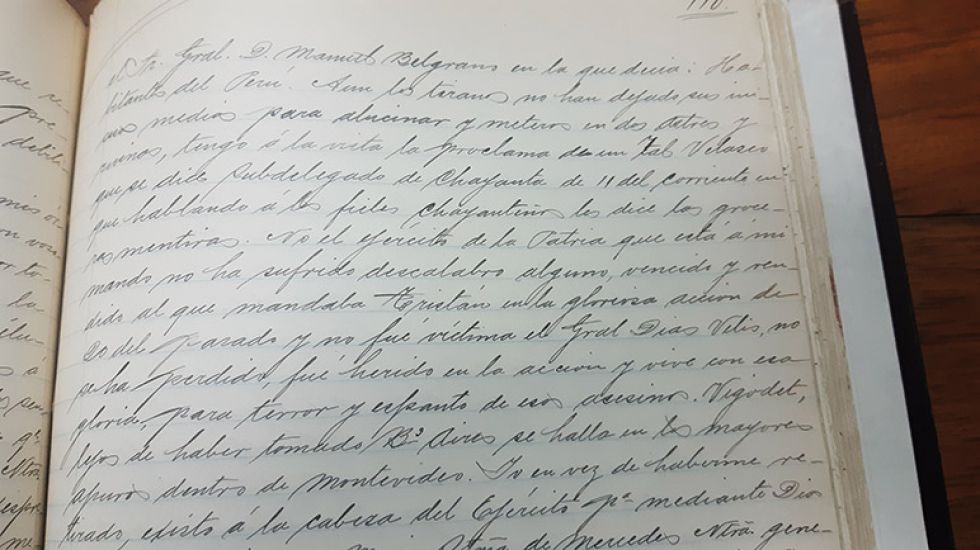 110.
el Sr. Gral. D. Manuel Belgrano en la que decia: Ha-
bitantes del Perú. Aun los tiranos no han dejado sus ini-
cuos medios para alucinar y meteros en dos
tengo á la vista la proclama de un tal Velasco
que se dice Subdelegado de Chayanta de 11 del corriente en
que hablando á los fieles Chayanteños les dice las groce-
ras mentiras. No el ejército de la Patria que está á mi
mando no ha sufrido descalabro alguno, vencido y ren-
dido al que mandaba Tristán en la gloriosa acción de
20 del pasado y no fué víctima el Gral Dias Velis, no
se ha perdido, fué herido en la acción y vive con esa
gloria, para terror y espanto de esos asesinos. Vigodet,
lejos de haber tomado Bs Aires se halla en los mayores
apuros dentro de Montevideo. Yo en vez de haberme re-
tirado, existo á la cabeza del Ejército pa mediante Dios
de Mercedes Ntra gene-
que re-
pre-
debili-
mis or-
to-
la
á
qe
Ntra
me-